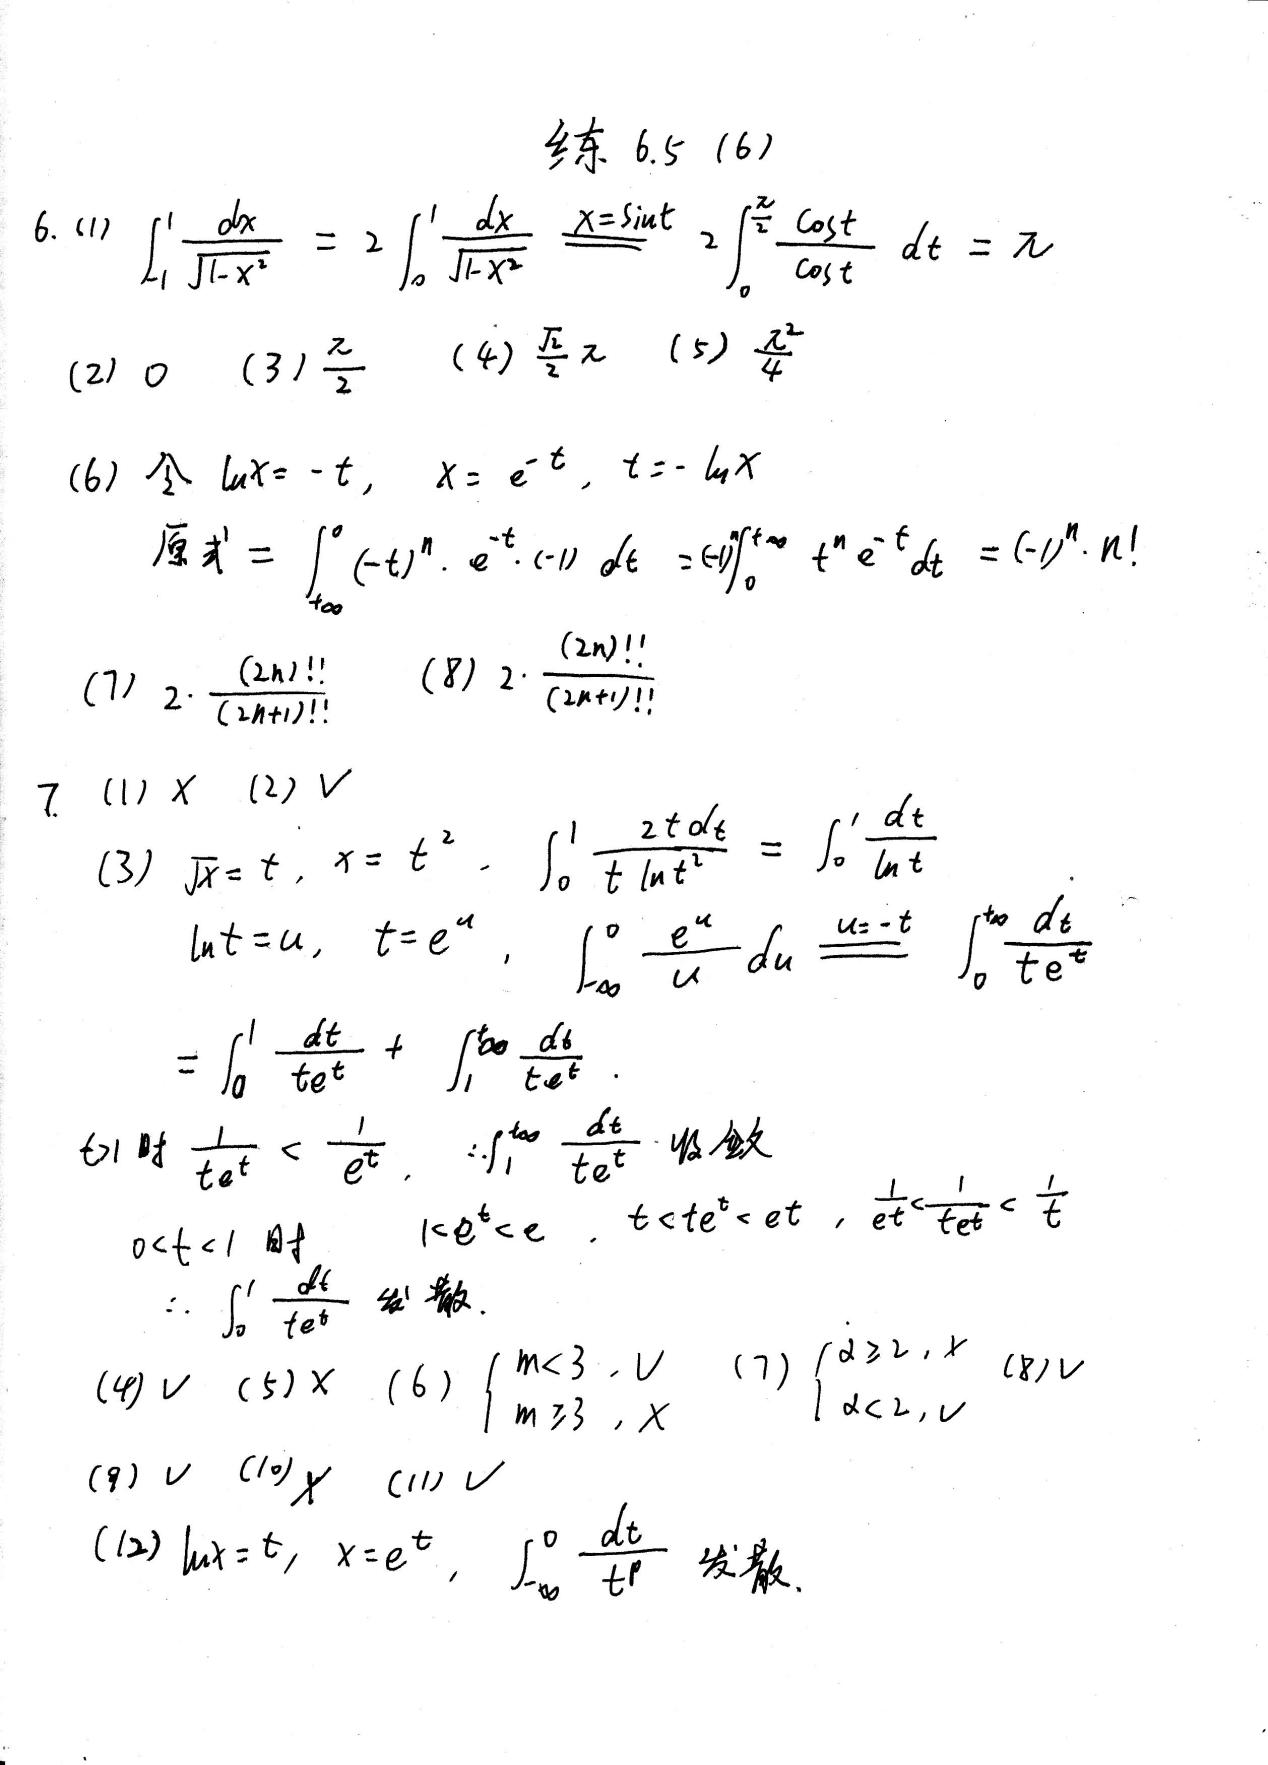 练 6.5 (6)
6. (1) ∫_{-1}^{1} dx/√(1-x²) = 2∫_0^1 dx/√(1-x²) x=sint 2∫_0^{π/2} cost/cost dt = π
(2) 0 (3) π/2 (4) √2/2 π (5) π²/4
(6) 令 lnx = -t, x = e^{-t}, t = -lnx
原式 = ∫_{+∞}^0 (-t)^n · e^{-t} · (-1) dt = (-1)^n ∫_0^{+∞} t^n e^{-t} dt = (-1)^n · n!
(7) 2 · (2n)!!/(2n+1)!! (8) 2 · (2n)!!/(2n+1)!!
7. (1) X (2) V
(3) √x = t, x = t². ∫_0^1 2tdt/(t lnt²) = ∫_0^1 dt/lnt
lnt = u, t = e^u, ∫_{-∞}^0 e^u/u du u=-t ∫_0^{+∞} dt/(te^t)
= ∫_0^1 dt/(te^t) + ∫_1^{+∞} dt/(te^t).
t>1时 1/(te^t) < 1/e^t, ∴∫_1^{+∞} dt/(te^t) 收敛
0<t<1时 1<e^t<e, t<te^t<et, 1/et < 1/(te^t) < 1/t
∴ ∫_0^1 dt/(te^t) 发散.
(4) V (5) X (6) { m<3, V m≥3, X (7) { α≥2, X α<2, V (8) V
(9) V (10) X (11) V
(12) lnx = t, x = e^t, ∫_{-∞}^0 dt/t^p 发散.